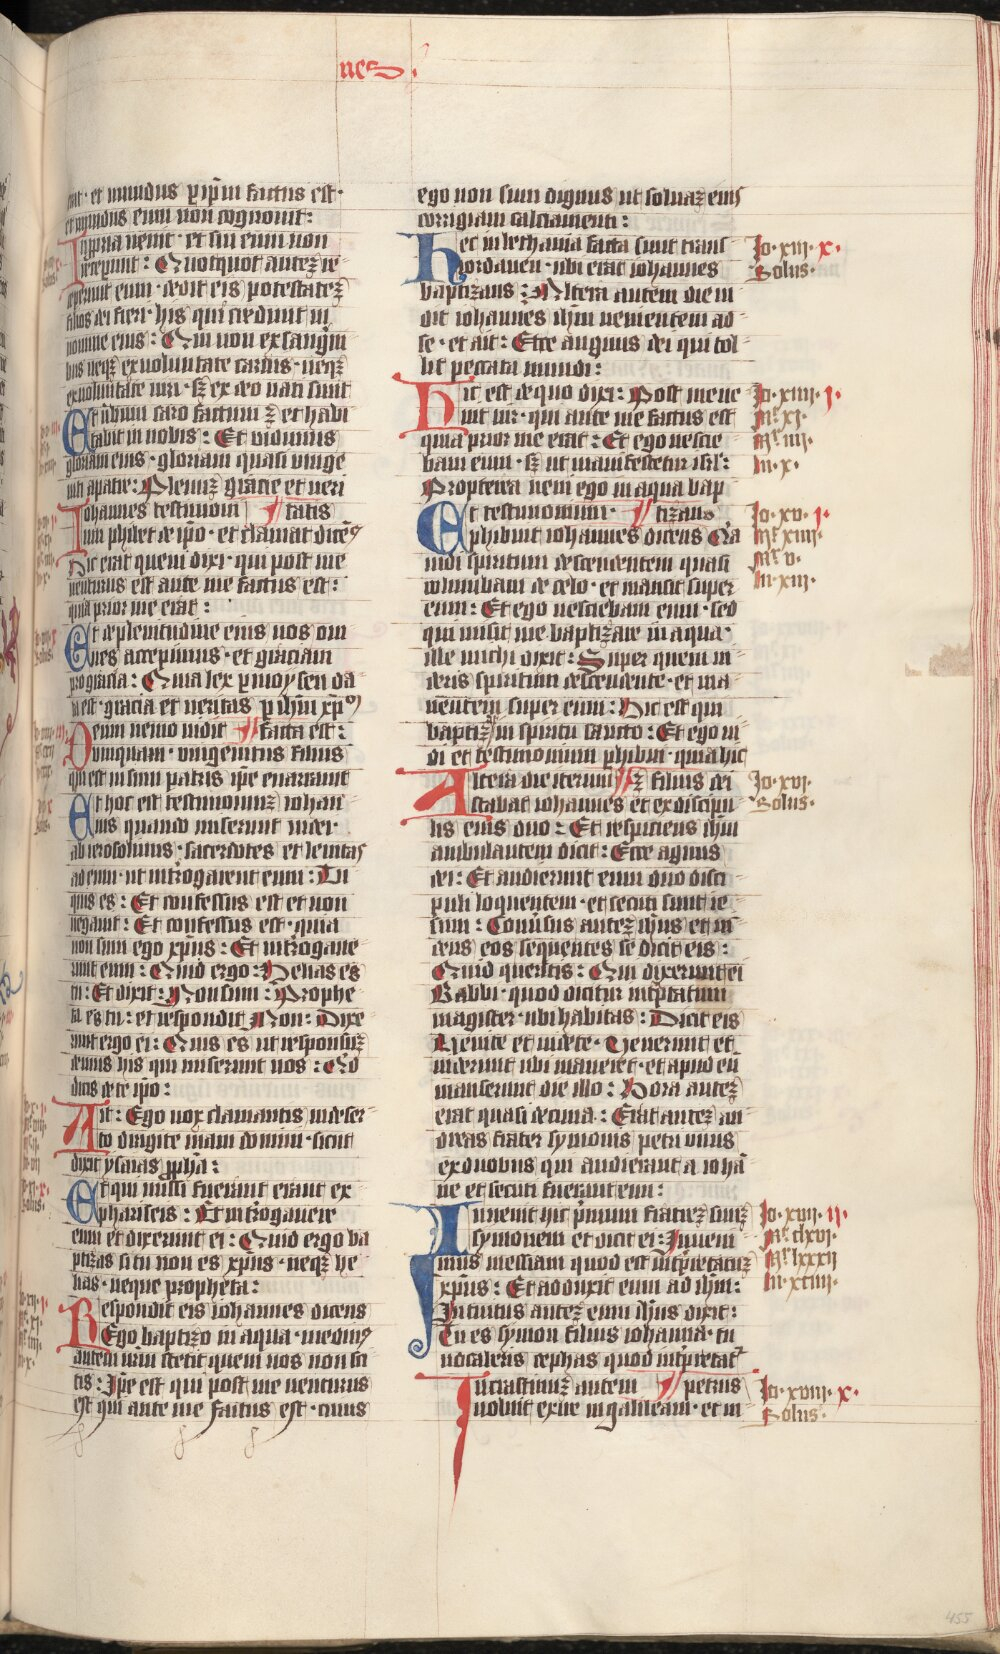 nes
erat · et mundus p ip̄m factus est ·
et mundus eum non cognouit :
In ppria uenit · et sui eum non
receperunt : Quotquot autez re
ceperunt eum · dedit eis potestatez
filios dei fieri · his qui credunt in
nomine eius : Qui non ex sangui
bus neqz ex uoluntate carnis · neqz
ex uoluntate uiri · sz ex deo nati sunt
Et ūbum caro factum ÷ et habi
tabit in nobis : Et uidimus
gloriam eius · gloriam quasi unige
niti a patre : Plenuz gracie et ueri
Iohannes testimoium ¶ tatis
um phibet de ip̄o · et clamat dicēs
Hic erat quem dixi · qui post me
uenturus est ante me factus est :
quia prior me erat :
Et de plenitudine eius nos om
nes accepimus · et graciam
pro gracia : Quia lex p moysen da
ta est · gracia et ueritas p ihm xp̄m
Deum nemo uidit ¶ facta est :
unquam · unigenitus filius
qui est in sinu patris ip̄e enarrauit
Et hoc est testimoniuz iohan
nis quando miserunt iudei
ab ierosolimis · sacerdotes et leuitas
ad eum · ut int̄rogarent eum : Tu
quis es : Et confessus est et non
negauit : Et confessus est · quia
non sum ego xp̄us : Et int̄rogaue
runt eum : Quid ergo : Helias es
tu : Et dixit : Non sum : Prophe
ta es tu : et respondit Non : Dixe
runt ergo ei : Quis es ut responsuz
demus his qui miserunt nos : Qd
dicis de te ip̄o :
Ait : Ego uox clamantis in deser
to dirigite uiam domini · sicut
dixit ysaias pph̄a :
Et qui missi fuerant erant ex
phariseis : Et int̄rogauere
eum et dixerunt ei : Quid ergo ba
ptizas si tu non es xp̄us · neqz he
lias · neque propheta :
Respondit eis iohannes dicens
Ego baptizo in aqua · medius
autem ur̄m stetit quem uos non sci
tis : Ip̄e est qui post me uenturus
est qui ante me factus est · cuius
ego non sum dignus ut soluaz eius
corrigiam calciamenti :
Hec in bethania facta sunt trans
iordanen · ubi erat iohannes
baptizans : Altera autem die ui
dit iohannes ih̄m uenientem ad
se · et ait : Ecce angnus dei qui tol
lit peccata mundi :
Hic est de quo dixi : Post me ue
nit uir · qui ante me factus est
quia prior me erat : Et ego nescie
bam eum · sz ut manifestetur isrl̄ :
Propterea ueni ego in aqua bap
Et testimonium · ¶ tizans
phibuit iohannes dicens Qa
uidi spiritum descendentem quasi
columbam de celo · et mansit super
eum : Et ego nesciebam eum · sed
qui misit me baptizare in aqua ·
ille michi dixit : Super quem ui
deris spiritum descendente · et ma
nentem super eum : Hic est qui
baptizat in spiritu sancto : Et ego ui
di et testimonium phibui · quia hic
Altera die iterum ¶ ÷ filius dei
stabat iohannes et ex discipu
lis eius duo : Et respiciens ih̄m
ambulantem dicit : Ecce agnus
dei : Et audierunt eum duo disci
puli loquentem · et secuti sunt ie
sum : Conūsus autez ih̄us et ui
dens eos sequentes se dicit eis :
Quid queritis : Qui dyxerunt ei
Rabbi · quod dicitur int̄ptatum
magister · ubi habitas : Dicit eis
Uenite et uidete · Uenerunt et
uiderunt ubi maneret · et apud eū
manserunt die illo : Hora autez
erat quasi decima : Erat autez an
dreas frater symonis petri unus
ex duobus qui audierant a iohā
ne et secuti fuerant eum :
Inuenit hic p̄mum fratrez suuz
symonem et dicit ei : Inueni
mus messiam quod est int̄pretatuz
xp̄us : Et adduxit eum ad ih̄m :
Intuitus autez eum ih̄us dixit :
Tu es symon filius iohanna · tu
uocaberis cephas quod int̄pretat̄
In crastinuz autem ¶ petrus
uoluit exire in galileam · et in
Io · xiii · x ·
Solus ·
Io · xiiii · i ·
Mͬ xi ·
Mͬ iiii ·
lu · x ·
Io · xv · i ·
Mͭ xiiii ·
Mͬ v ·
lu · xiii ·
Io · xvi ·
Solus ·
Io · xvii · ii ·
Mͭ clxvi ·
Mͬ lxxxii
lu · xciiii ·
Io · xviii · x ·
Solus ·
455